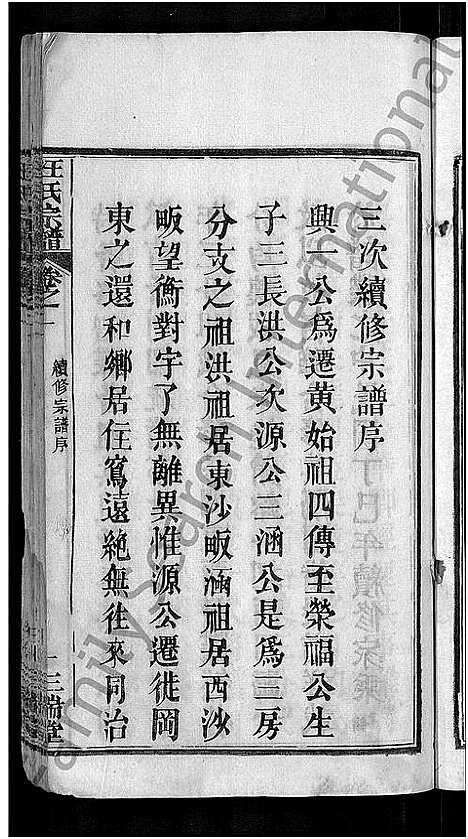 三次續修宗譜序
興一公爲遷黃始祖四傳至榮福公生
子三長洪公次源公三涵公是爲三房
分支之祖洪祖居東沙畈涵祖居西沙
畈望衡對宇了無離異惟源公遷徙岡
東之還和鄉居住寫遠絶無往來同治
汪氏宗譜
卷之一
續修宗譜序
一
三瑞堂
丁巳年續修宗
Family Search International